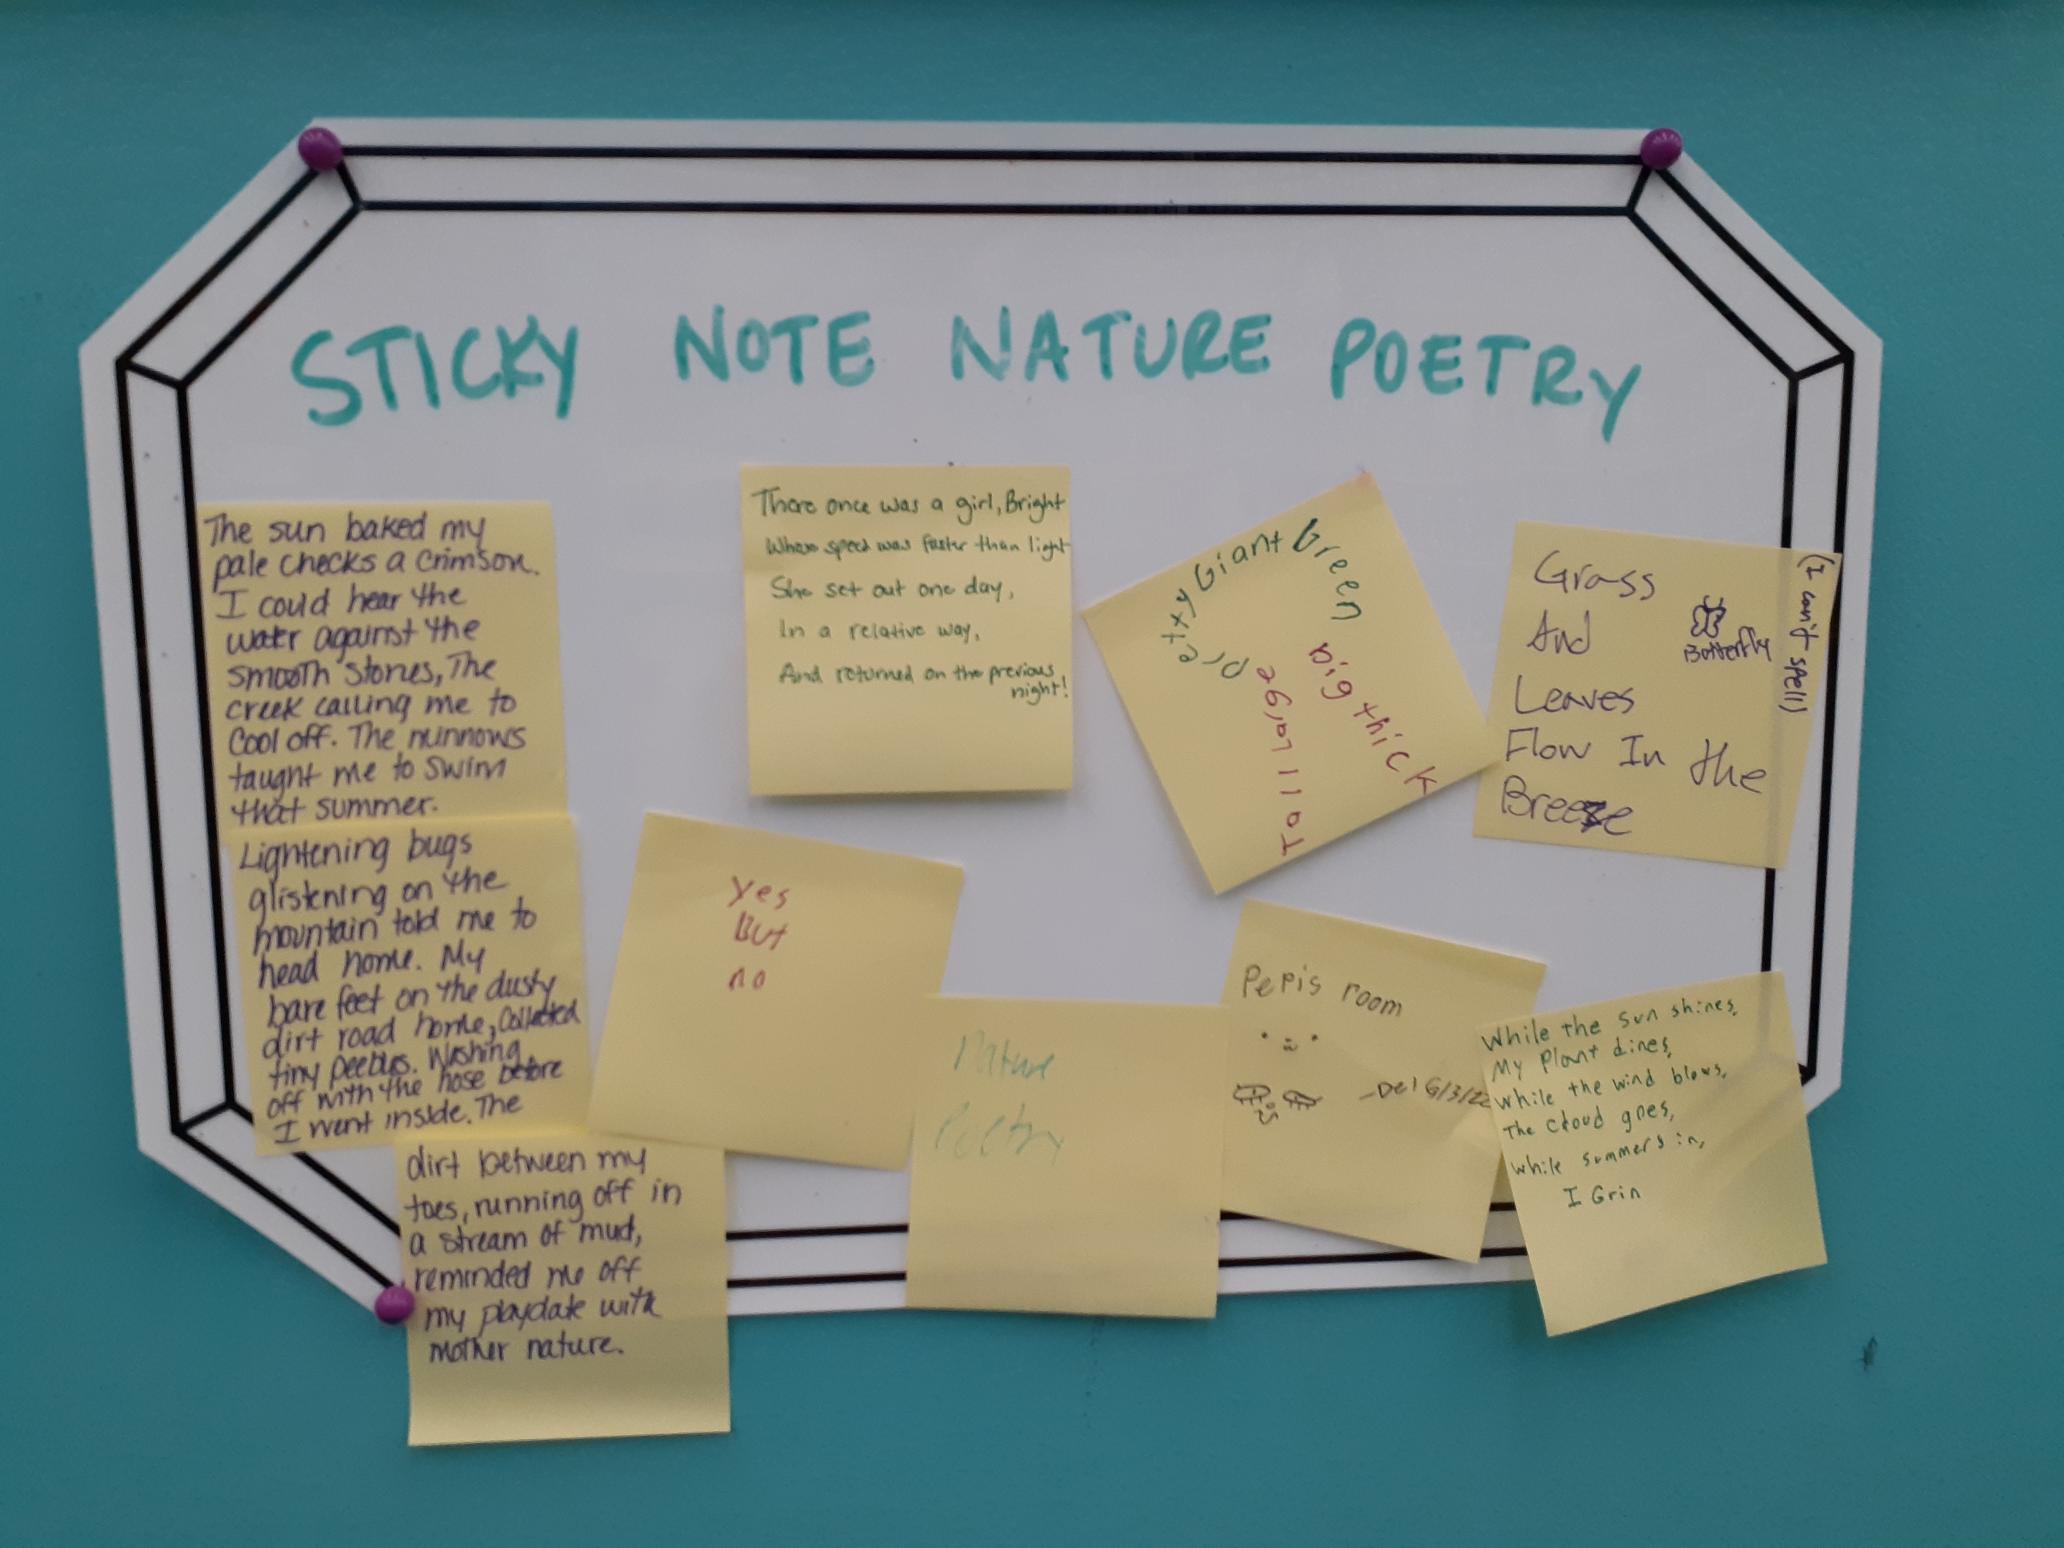 STICKY NOTE NATURE POETRY
The sun baked my
pale checks a crimson.
I could hear the
water against the
smooth stones, The
creek calling me to
cool off. The minnows
taught me to swim
that summer.
Lightening bugs
glistening on the
mountain told me to
head home. My
bare feet on the dusty
dirt road home, collected
tiny peebles. Washing
off with the hose before
I went inside. The
dirt between my
toes, running off in
a stream of mud,
reminded me off
my playdate with
mother nature.
There once was a girl, Bright
Whose speed was faster than light
She set out one day,
In a relative way,
And returned on the previous
night!
Yes
But
no
Giant Green
big thick
Tall large
Grass
And
Leaves
Flow In the
Breeze
Botterfly
(I can't spell)
Nature
Poetry
Pepis room
-Del 6/3/22
While the sun shines,
My plant dines,
while the wind blows,
The cloud goes,
while summers in,
I Grin